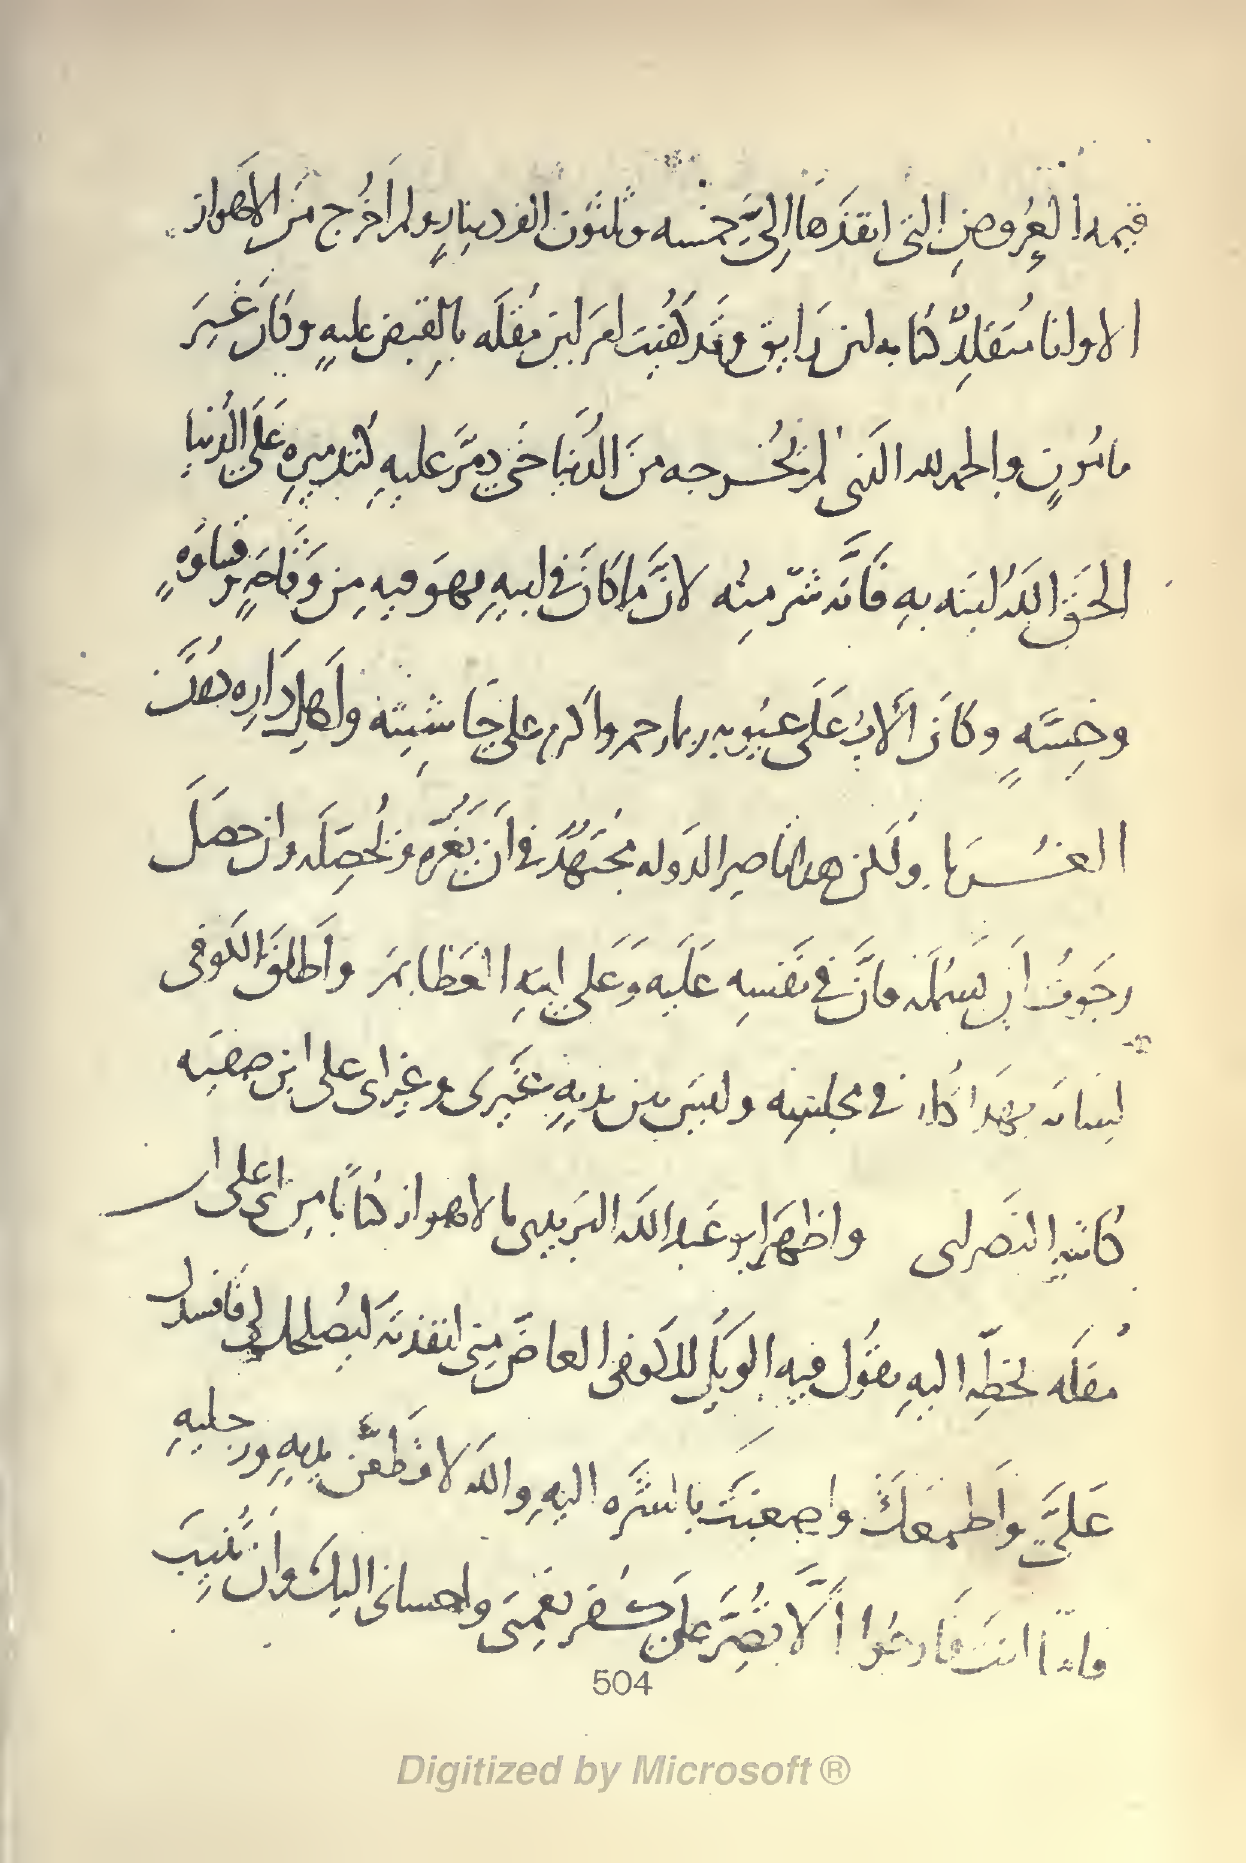 قيمه العروض التي انفذها إليّ خمسه وثلثون الف دينار ولم أخرج من الاهواز
الا وانا متقلد كتابه لابن رايق وقد كفيت امر ابن مقله بالقبض عليه وكان غير
مامون والحمد لله الذي لم يخرجه من الدنيا حتى دمر عليه كتدميره على الدنيا
الحق ابنه به فانه شر منه لان ما كان في ابيه فهو فيه من وقاحه
وخسه وكان الاب على عيوبه ربما رحم واكرم على حاشيته واهل داره
ولكن هذا ناصر الدوله مجتهد في أن يغره ويحصله وان حصل
رجوت أن فان في نفسه عليه وعلى ابيه العظايم واطلق الكوفي
لسانه بهذا كله في مجلسه وليس بين يديه غيري وغير ابي علي ابن صفيه
كاتبه النصراني واظهر ابو عبد الله البريدي بالاهواز كتابا من ابي علي ابن
مقله بخطه اليه يقول فيه الويل للكوفي العاض مني انفذته ليصلحك لي فافسدك
عليّ واطمعك واصغيت اليه والله لاقطعن يديه ورجليه
فاما انت فارجوا ألّا تصر على كفر نعمتي واحساني اليك وان تنيب
504
Digitized by Microsoft ®